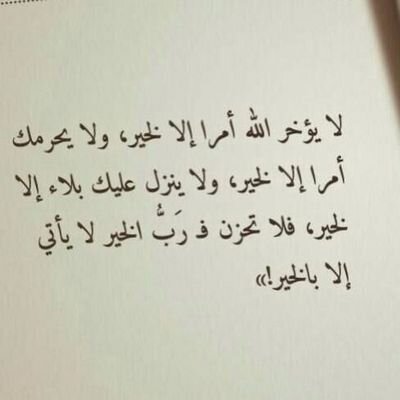 لا يؤخر الله أمرا إلا لخير، ولا يحرمك
أمرا إلا لخير، ولا ينزل عليك بلاء إلا
لخير، فلا تحزن فـ رَبُّ الخير لا يأتي
إلا بالخير!»